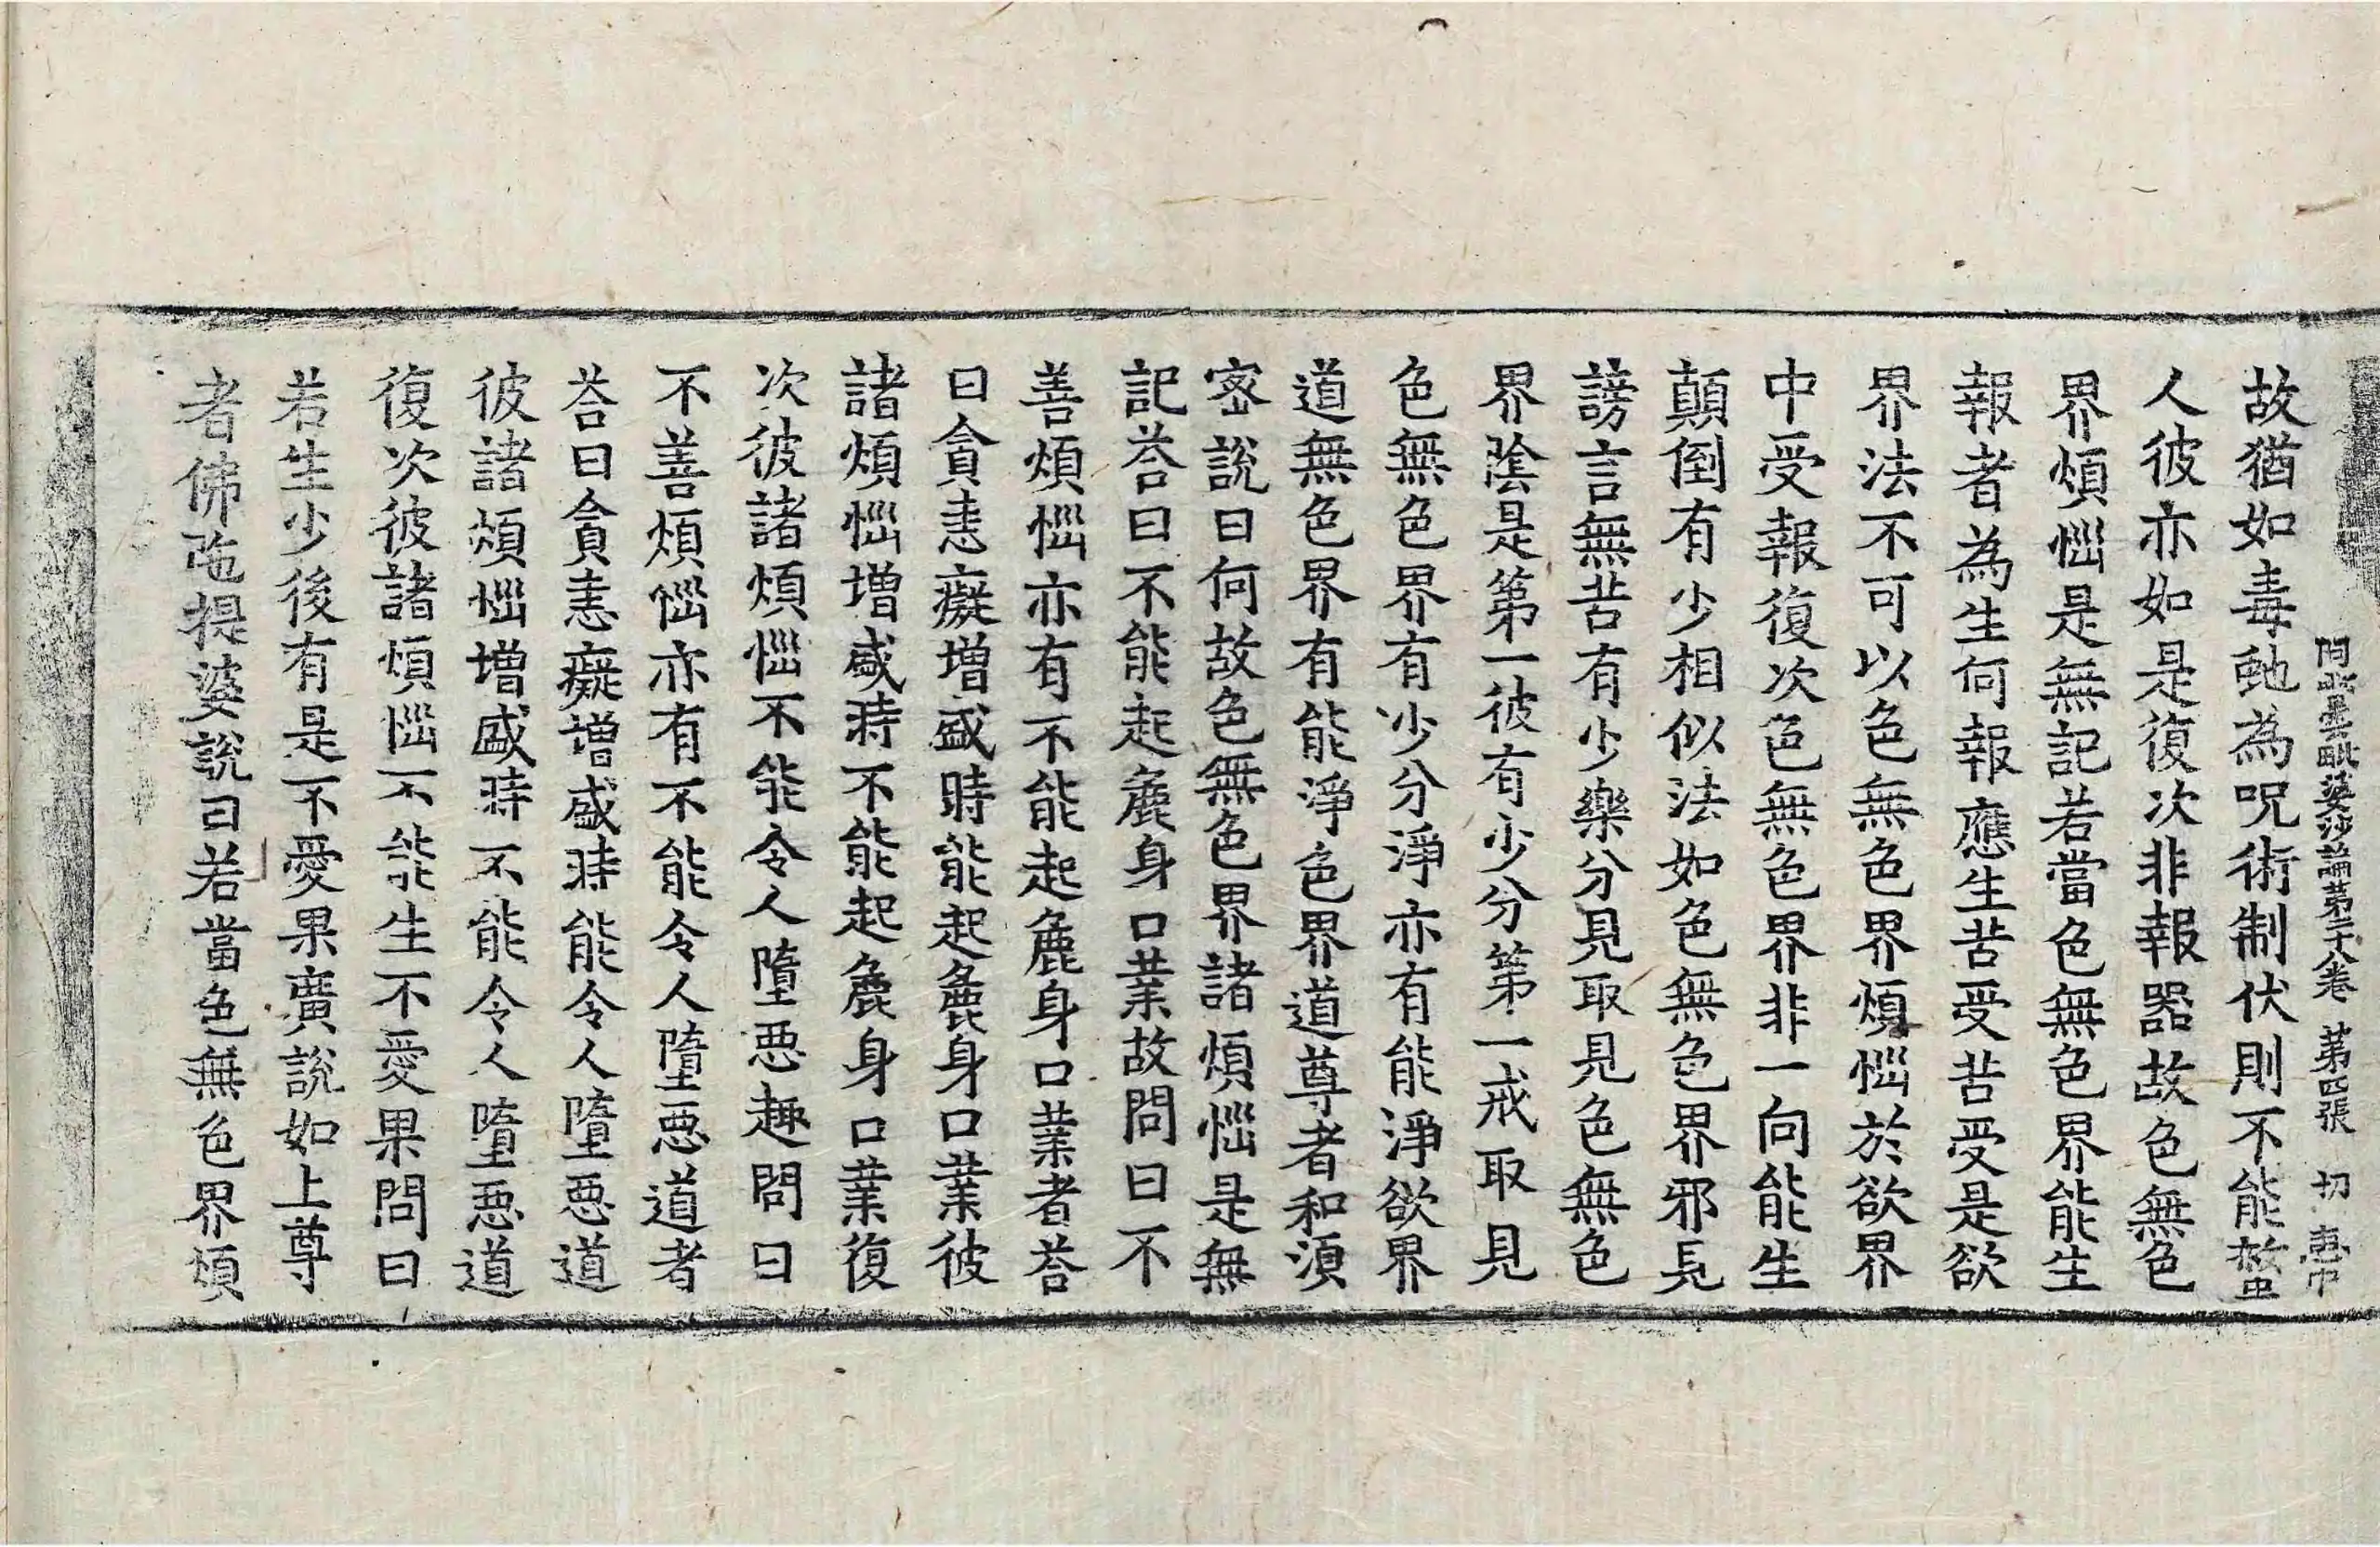 阿毗曇毗婆沙論第二十八卷 第四張 切
故猶如毒虵為呪術制伏則不能螫
人彼亦如是復次非報器故色無色
界煩惱是無記若當色無色界能生
報者為生何報應生苦受苦受是欲
界法不可以色無色界煩惱於欲界
中受報復次色無色界非一向能生
顛倒有少相似法如色無色界邪見
謗言無苦有少樂分見取見色無色
界陰是第一彼有少分第一戒取見
色無色界有少分淨亦有能淨欲界
道無色界有能淨色界道尊者和須
密說曰何故色無色界諸煩惱是無
記荅曰不能起麁身口業故問曰不
善煩惱亦有不能起麁身口業者荅
曰貪恚癡增盛時能起麁身口業彼
諸煩惱增盛時不能起麁身口業復
次彼諸煩惱不能令人墮惡趣問曰
不善煩惱亦有不能令人墮惡道者
荅曰貪恚癡增盛時能令人墮惡道
彼諸煩惱增盛時不能令人墮惡道
復次彼諸煩惱不能生不愛果問曰
若生少後有是不愛果廣說如上尊
者佛陁提婆說曰若當色無色界煩